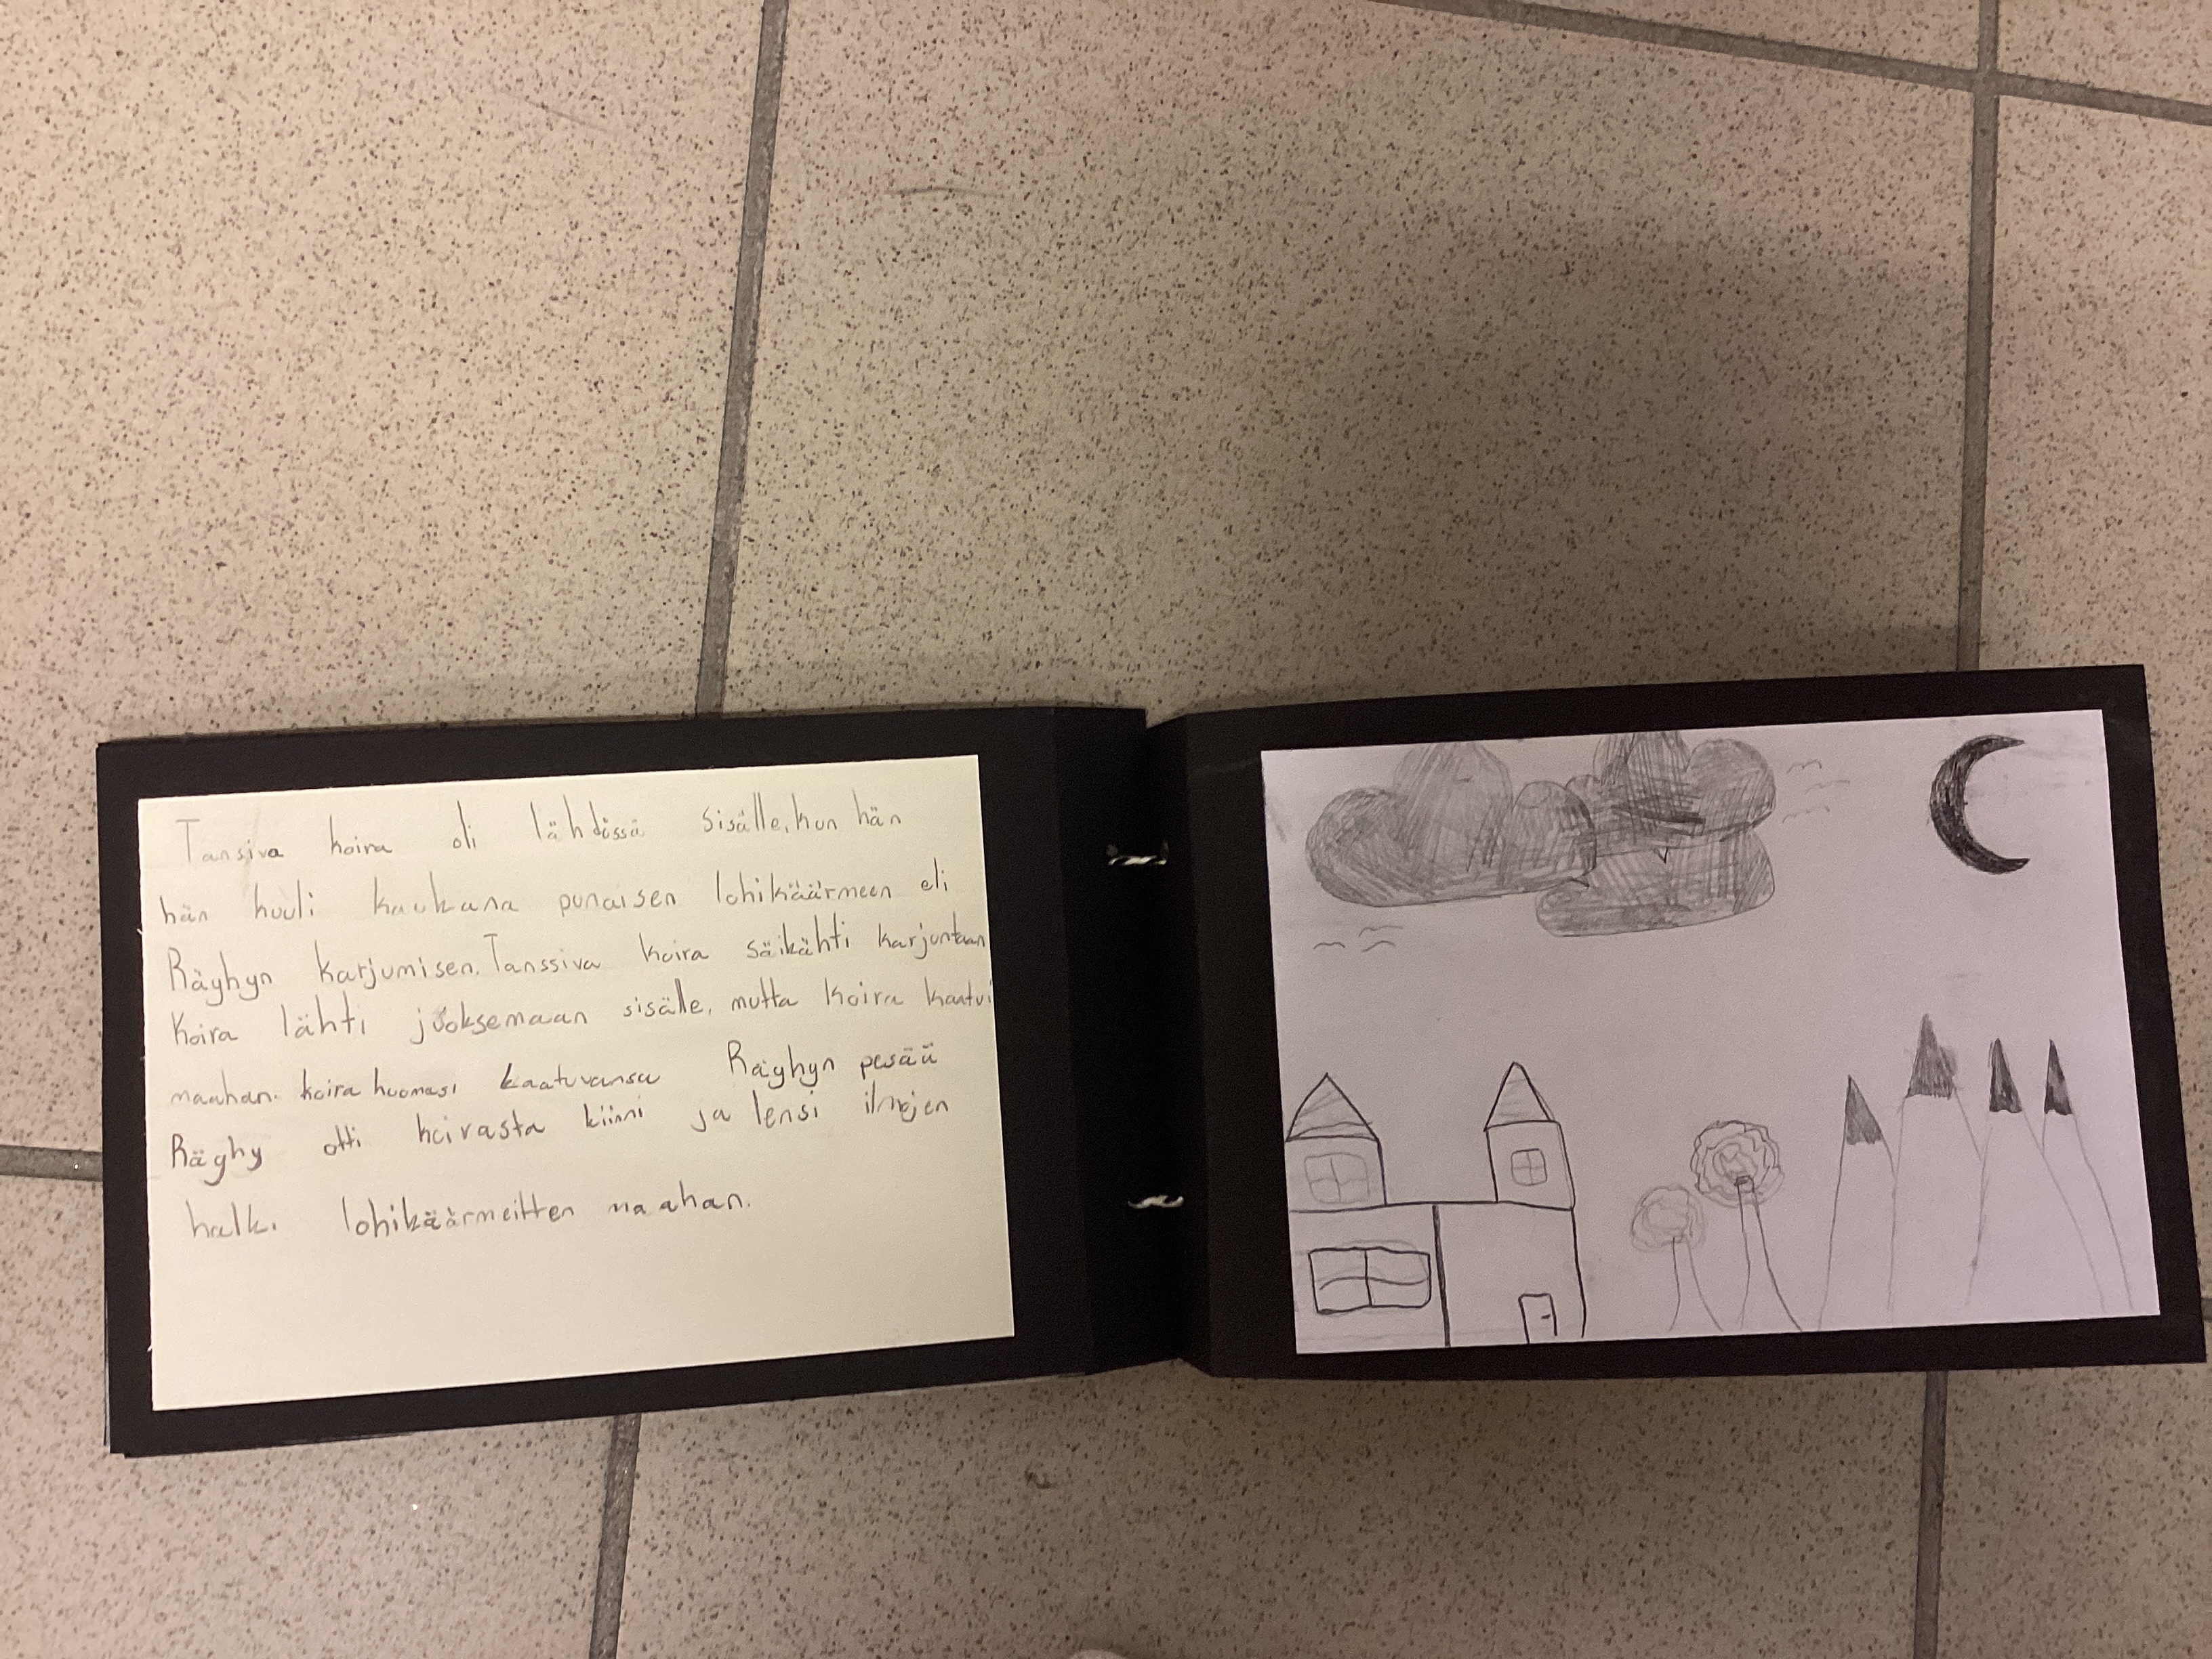 Tansiva koira oli lähdössä sisälle, kun hän
hän kuuli kaukana punaisen lohikäärmeen eli
Räyhyn karjumisen. Tanssiva koira säikähti karjuntaan
Koira lähti juoksemaan sisälle, mutta koira kaatui
maahan. koira huomasi kaatuvansa Räyhyn pesää
Räyhy otti koirasta kiinni ja lensi ilmojen
halki lohikäärmeitten maahan.